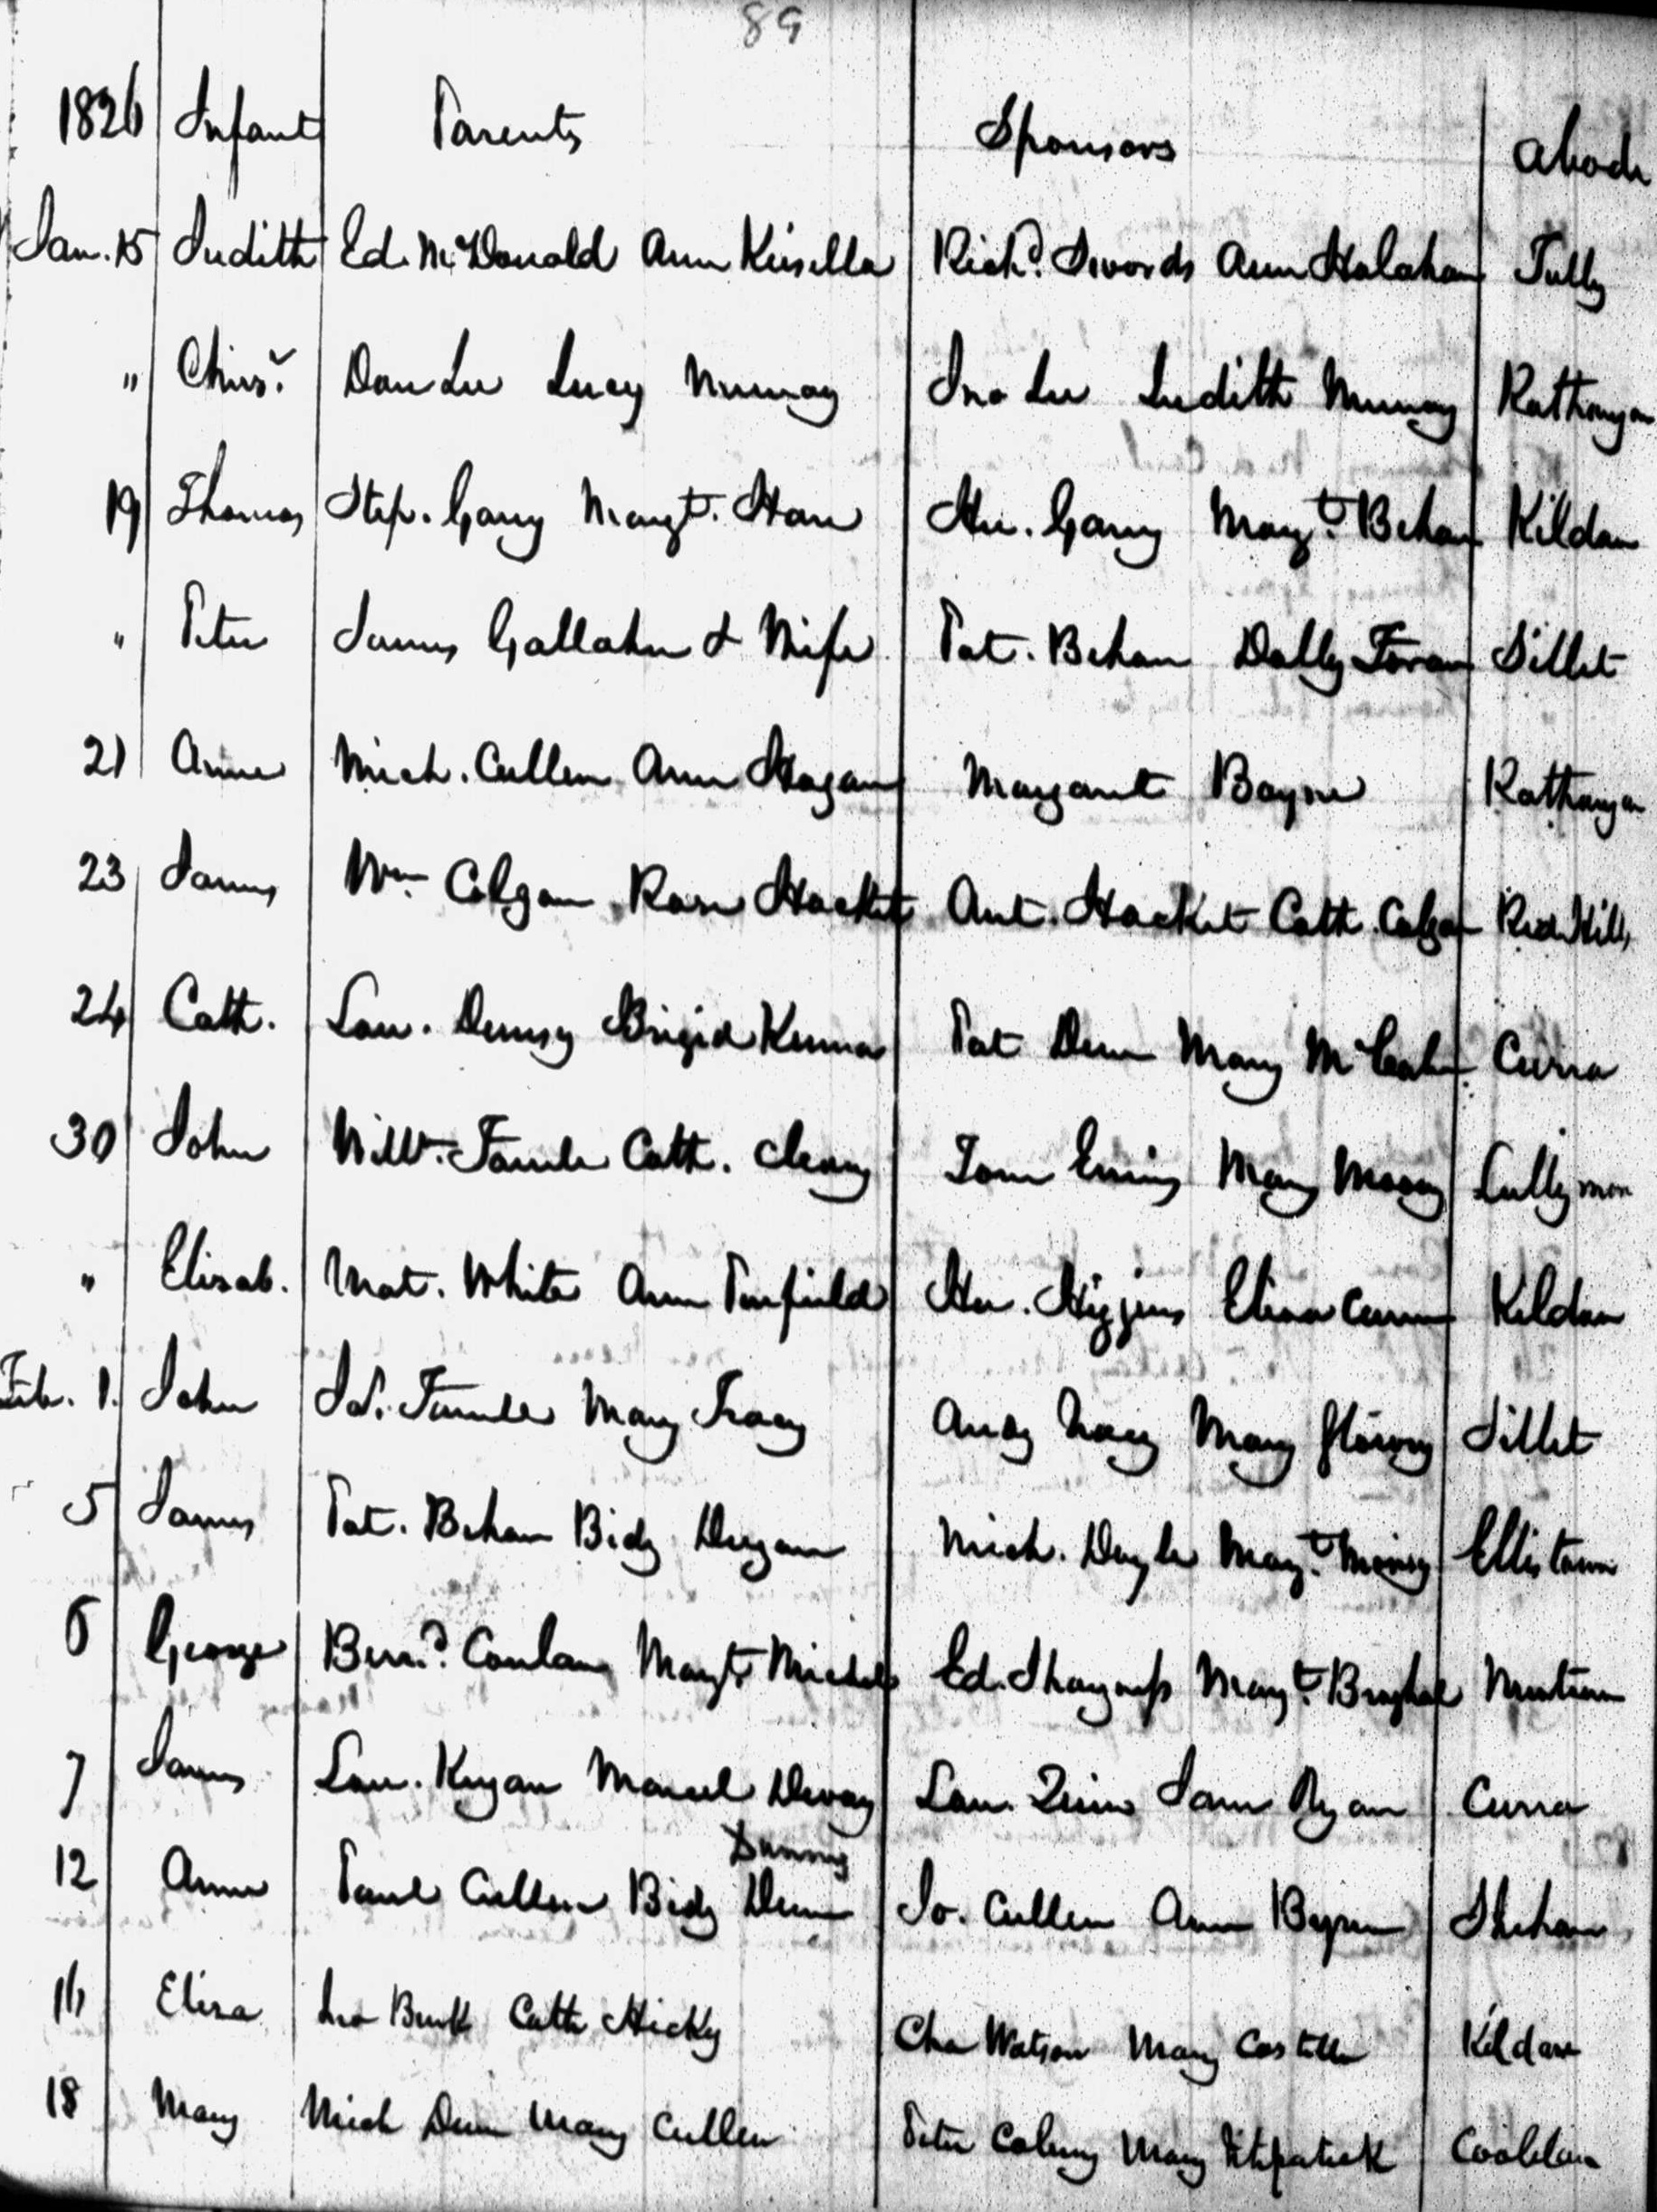 89
1826 Infant Parents Sponsors Abode
Jan. 15 Judith Ed. McDonald Ann Kinsella Richd. Swords Ann Halahan Tully
" Chrisr. Dan Lee Lucy Murray Jno Lee Judith Murray Rathangan
19 Thomas Step. Garry Margt. Hare Hu. Garry Margt. Behan Kildare
" Peter James Gallaher & Wife Pat. Behan Dolly Foran Sillet
21 Anne Mich. Cullen Ann Hagan Margaret Bayne Rathangan
23 James Wm. Colgan Rose Hacket Ant. Hacket Cath. Colgan Red Hills
24 Cath. Lau. Demsy Brigid Kenna Pat Dunn Mary Curra
30 John Cath. Cleary Tom Mary Cullymon
" Elisab. Mat. White Ann Penfield Hu. Higgins Elisa Kildare
Feb. 1. John Mary Tracy Andy Tracy Mary Sillet
5 James Pat. Behan Bidy Dugan Mich. Doyle Margt. Ellistown
6 George Bernd. Conlan Margt. Ed. Margt.
7 James Lau. Kegan Devoy Lau. Quin Jane Ryan Curra
Dunny
12 Anne Paul Cullen Bidy Dunn Jo. Cullen Ann Byrne
16 Elisa Jno Burk Cath Hicky Cha Watson Mary Costello Kildare
18 Mary Mich Dunn Mary Cullen Peter Mary Fitzpatrick